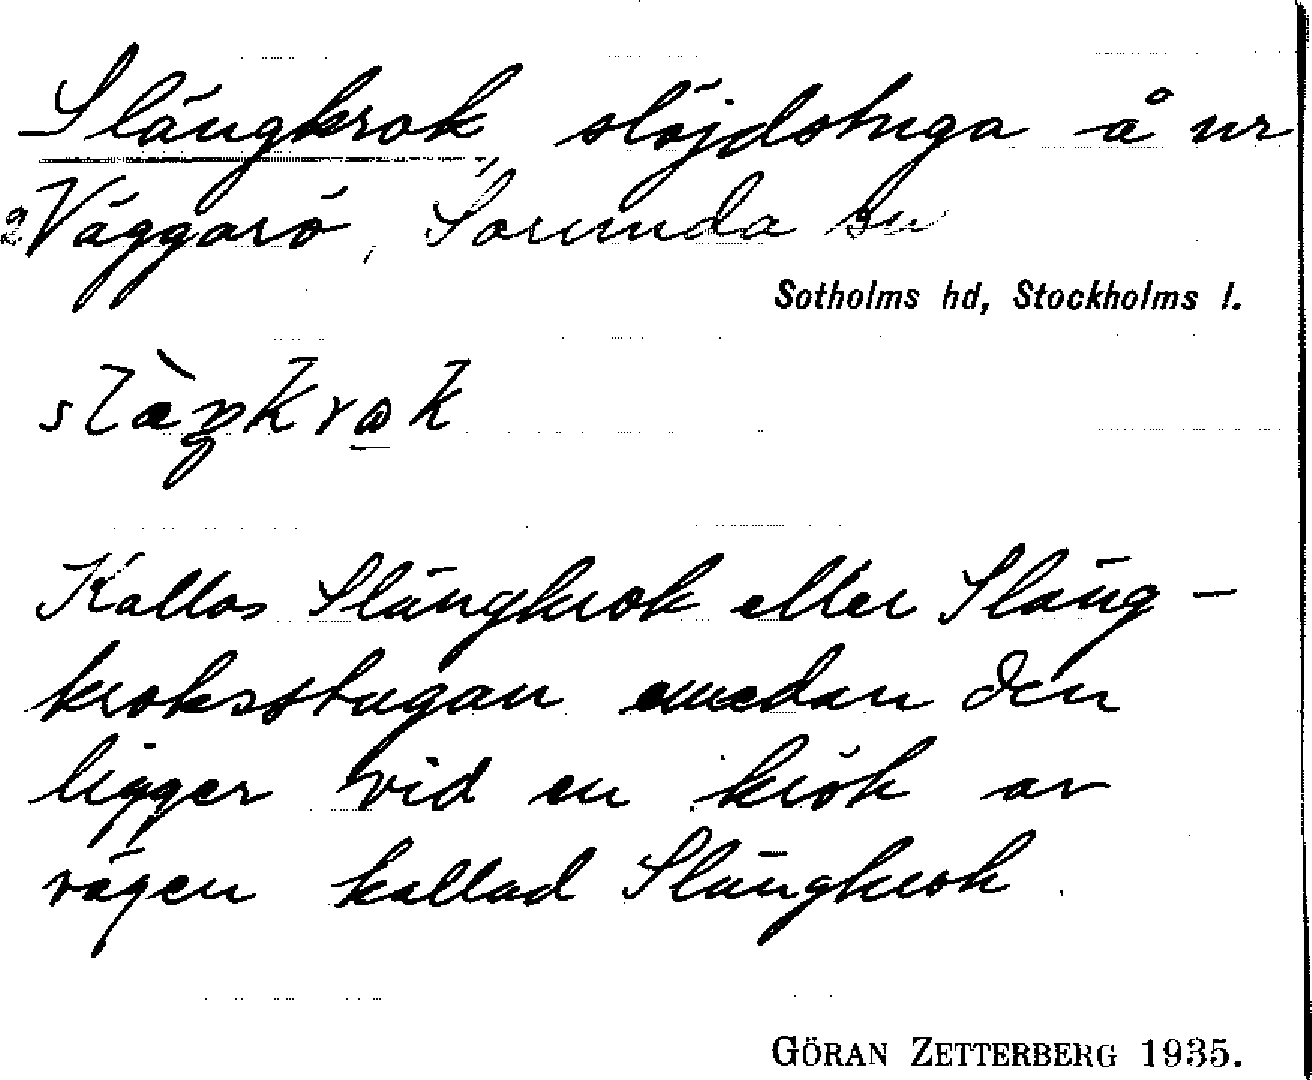 Slängkrok, slöjdstuga å nr
2 Väggarö, Sorunda sn
Sotholms hd, Stockholms l.
Kallas Slängkrok eller Släng-
kroksstugan emedan den
ligger vid en krök av
vägen kallad Slängkrok.
GÖRAN ZETTERBERG 1935.